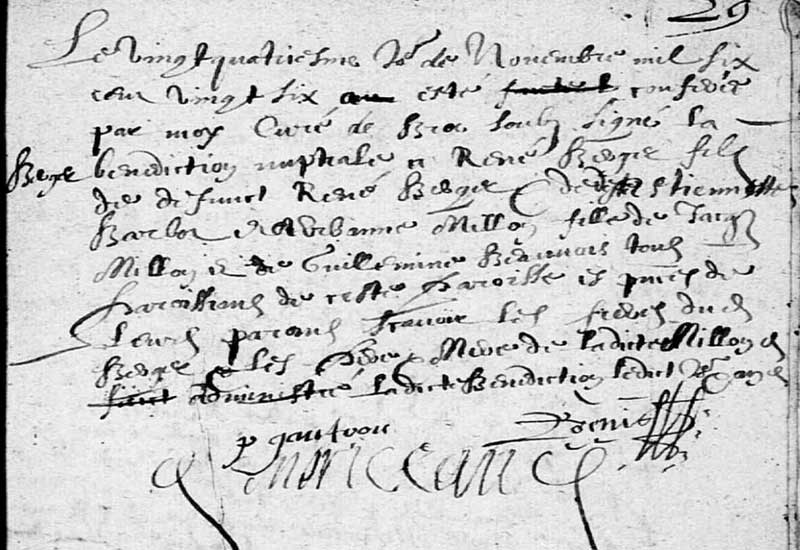 29
Le vingtquatriesme Jor de Novembre mil six
cens vingt six esté conferée
par moy Curé de soubz signé la
Berge benediction nuptiale a René Berge filz
de defunct René Berge & de Estiennette
Barbot et Urbanne Millon fille de Jacq
Millon et de Guillemine Beauvais tous
Paroissiens de ceste Paroisse es pnces de
leurs parans scavoir les freres dud
Berge & les Pere & Mere de ladicte Millon
administré ladicte Benediction ledict Jor